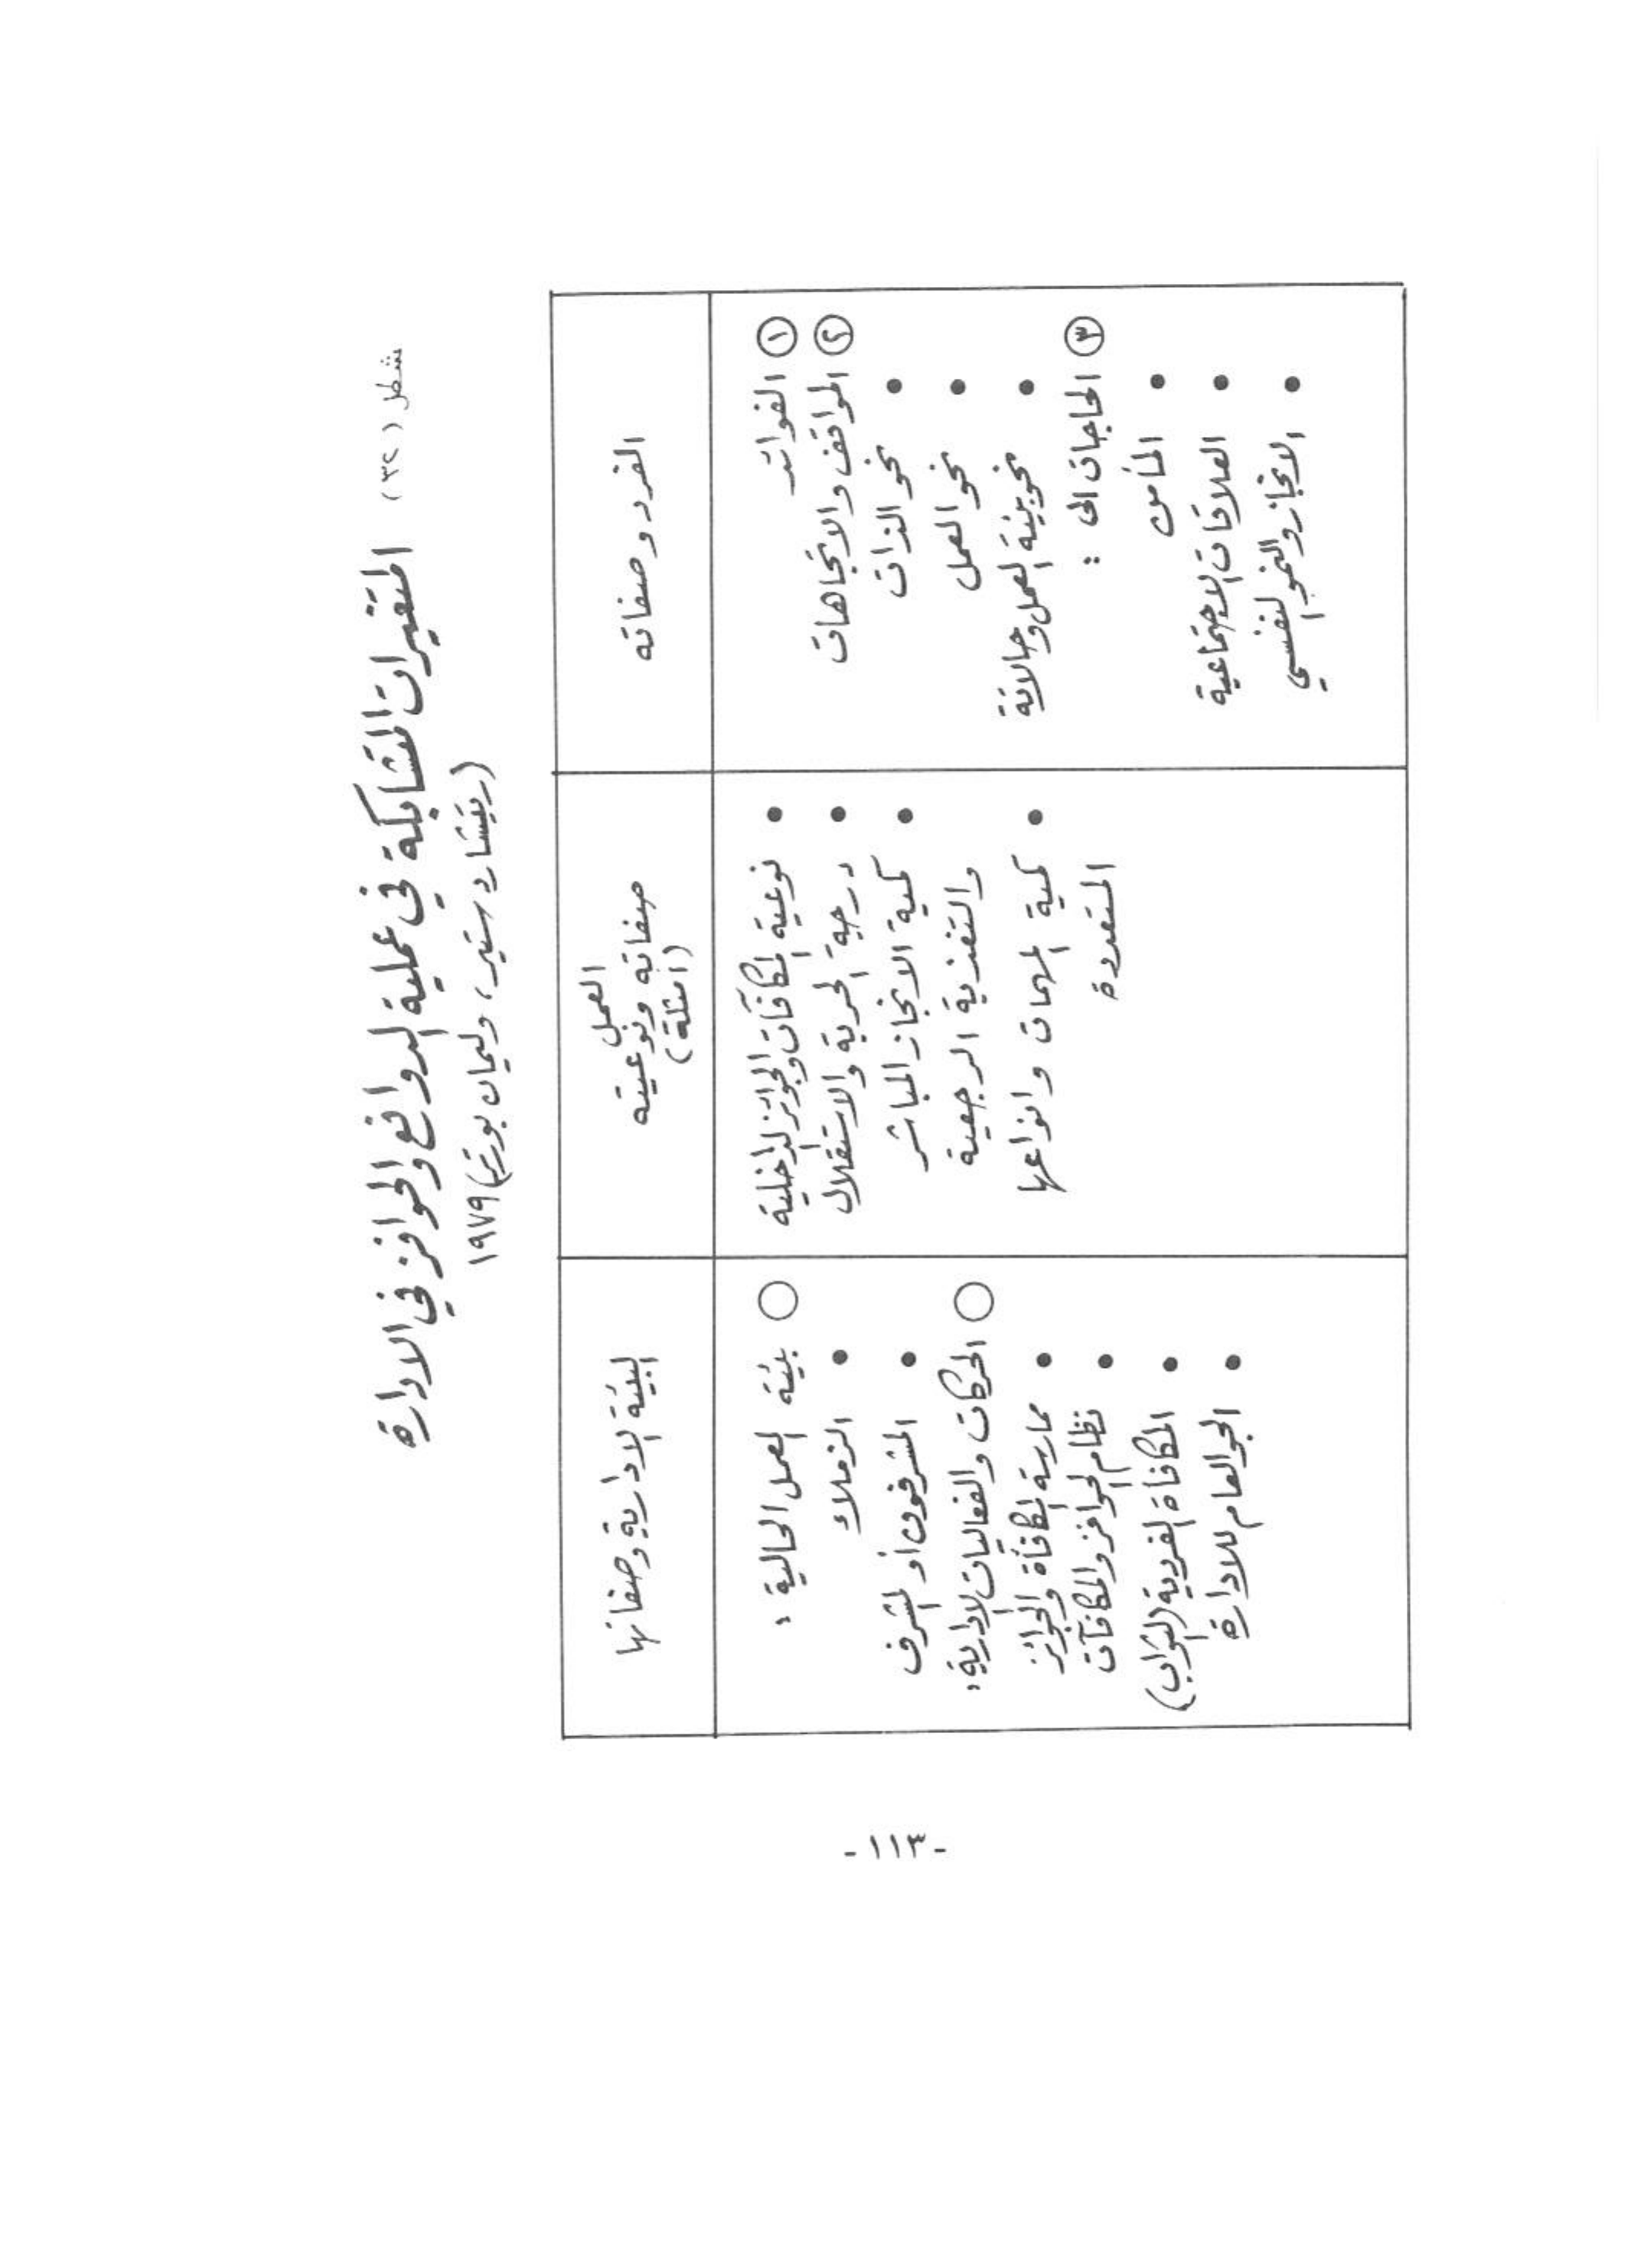 شكل (٣٢)
المتغيرات المتشابكة في عملية الدوافع والحوافز في الادارة
(ريتشارد ستير، وليمان بورتر) ١٩٧٩
الفرد وصفاته
① الفوائد
② المواقف والاتجاهات
• نحو الذات
• نحو العمل
• نحو بيئة العمل وحالاته
③ الحاجات الى :
• المأمن
• العلاقات الاجتماعية
• الانجاز والنمو النفسي
العمل
صفاته ونوعيته
(أمثلة)
• نوعية المكافآت والجوائز الداخلية
• درجة الحرية والاستقلال
• كمية الانجاز المباشر
والتغذية الرجعية
• كمية المهمات وانواعها
المتعددة
البيئة الادارية وصفاتها
○ بيئة العمل الحالية :
• الزملاء
• المشرفون أو المشرف
○ الحركات والفعاليات الادارية :
• ممارسة المكافأة والجوائز
• نظام الحوافز والمكافآت
• المكافأة الفردية (الثواب)
• الجو العام للادارة
- ١١٣ -